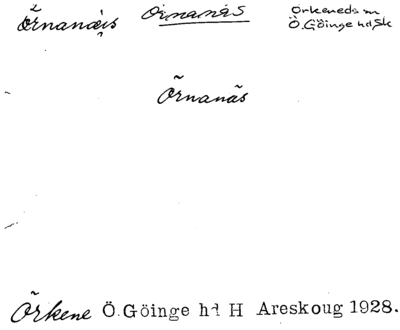 Örnanäs
Orkeneds sn
Ö.Göinge hd, Sk
Õrnanãs
Õrkene Ö.Göinge hd H Areskoug 1928.